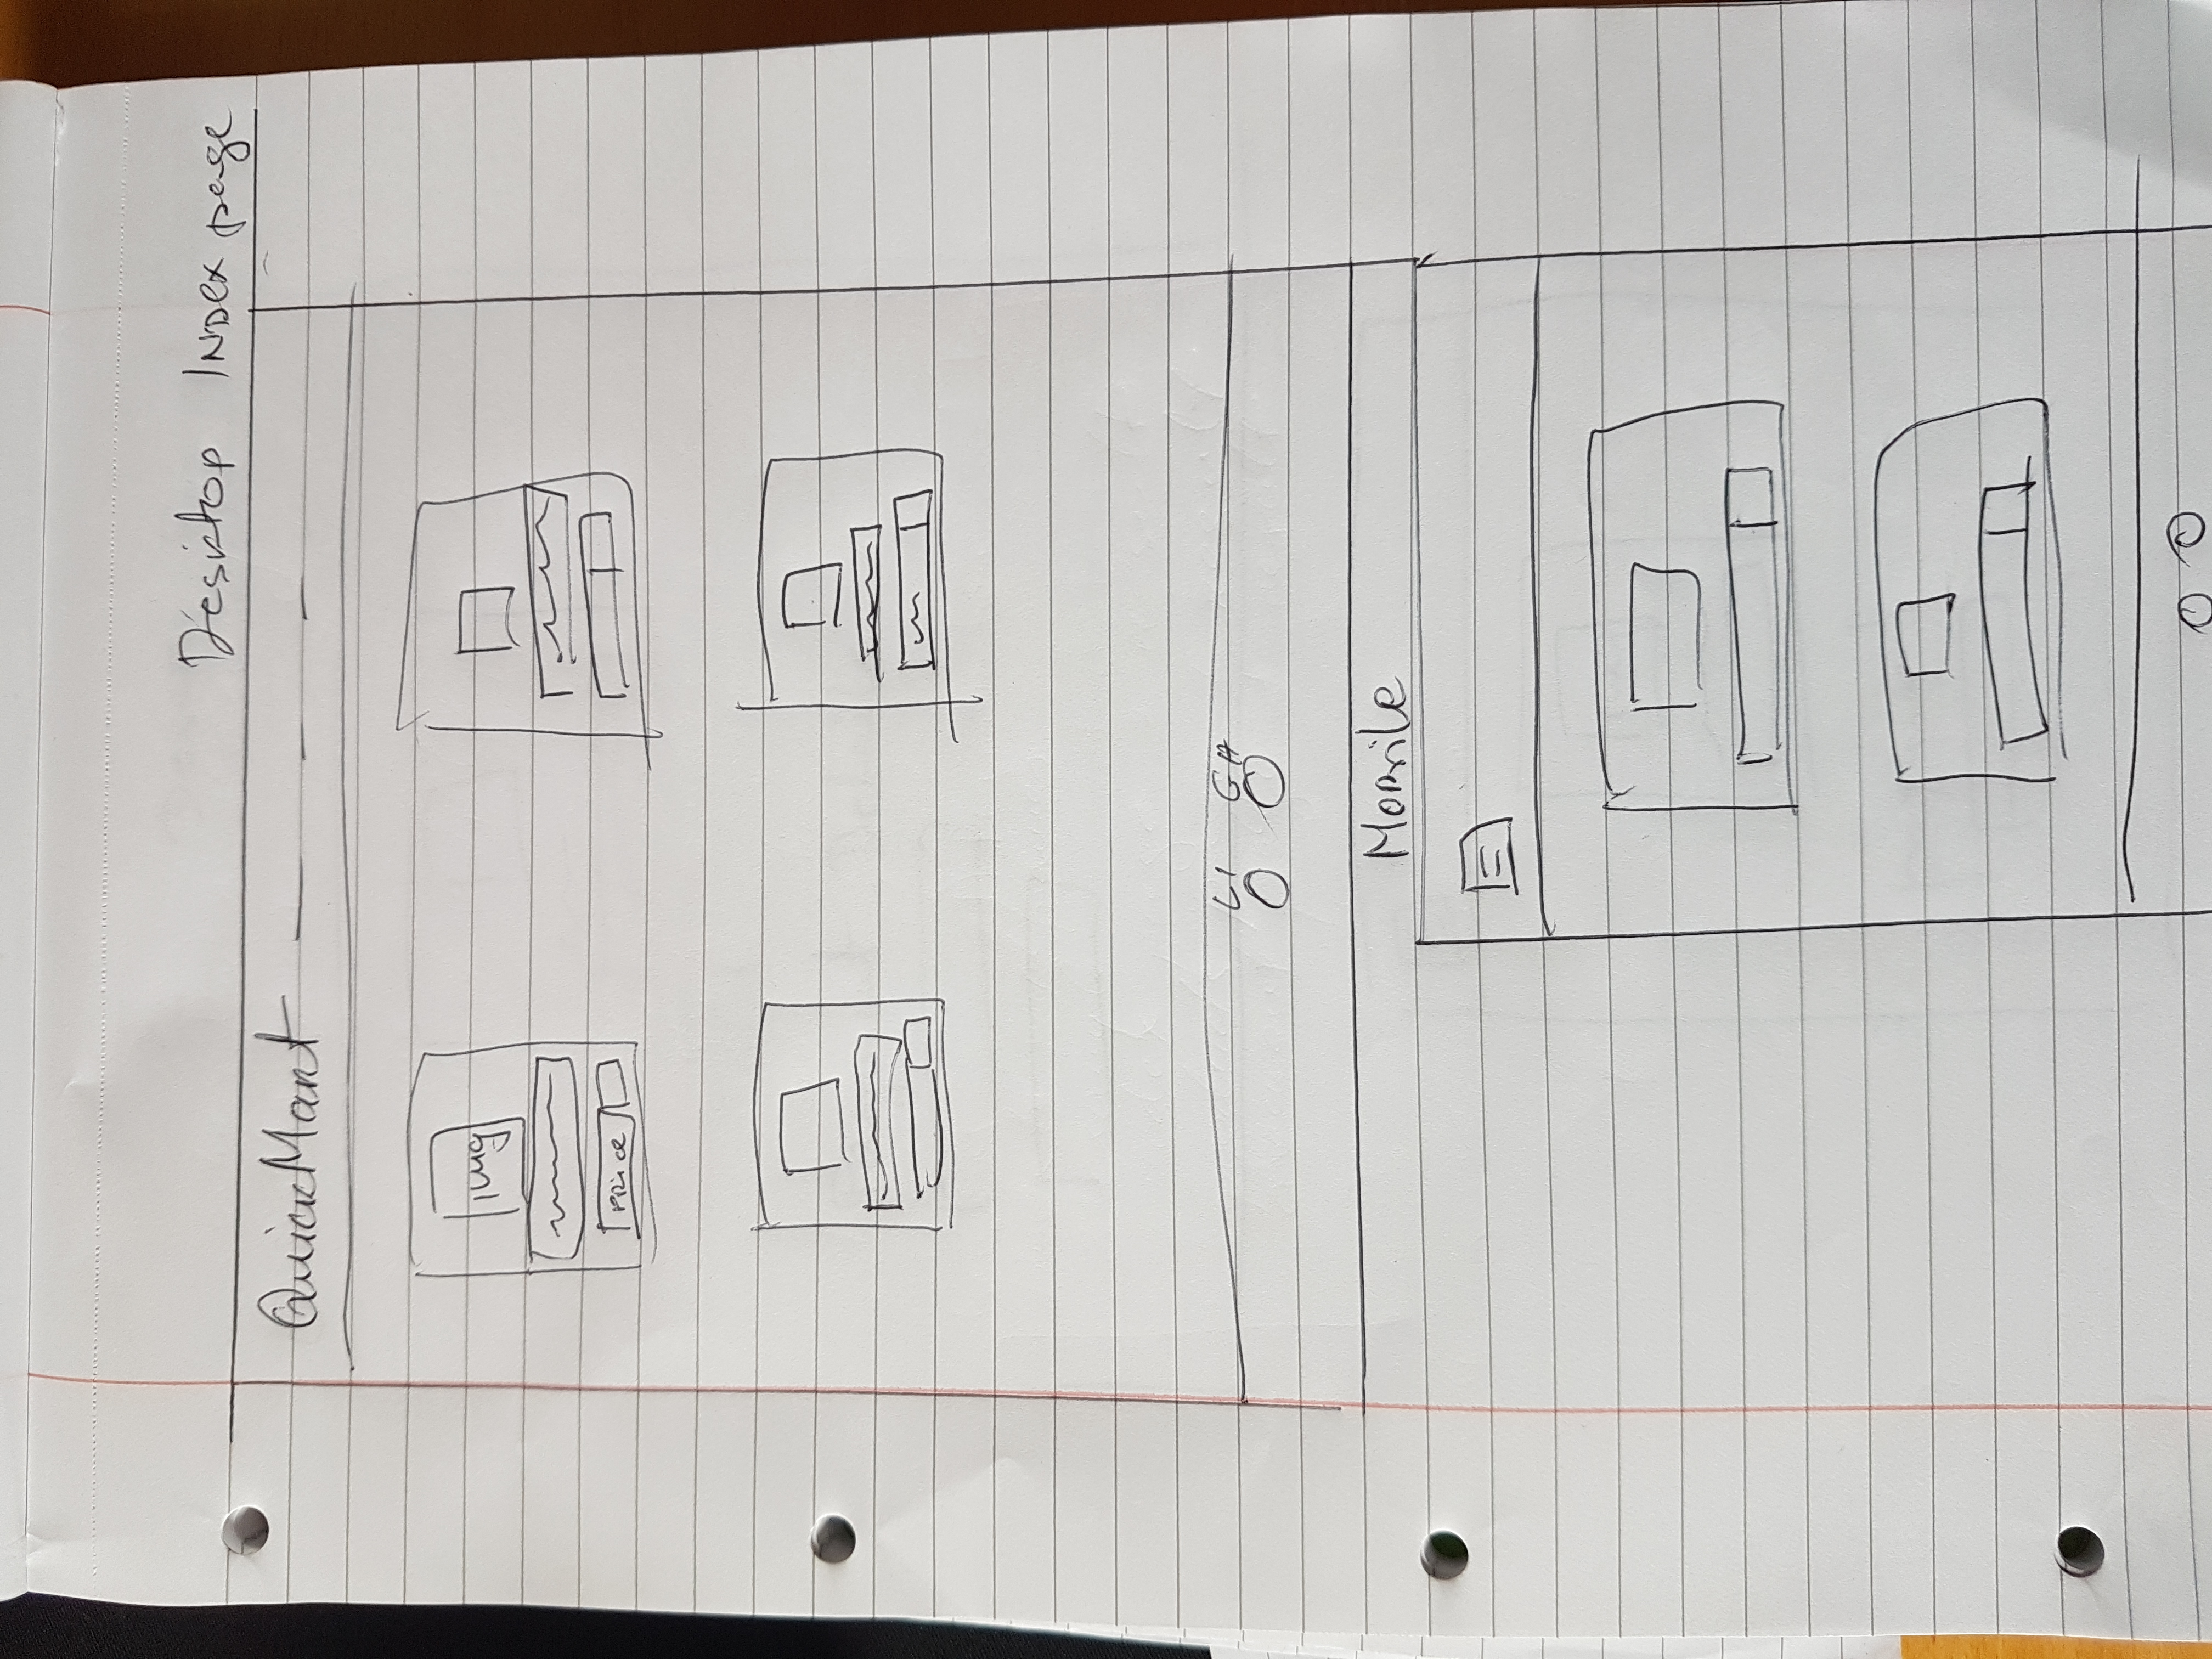 Desktop Index page
QuickMart
img
Price
LI GH
Mobile